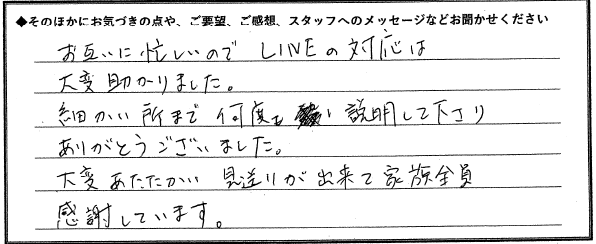 ◆そのほかにお気づきの点や、ご要望、ご感想、スタッフへのメッセージなどお聞かせください
お互いに忙しいので LINEの対応は
大変助かりました。
細かい所まで何度も 説明して下さり
ありがとうございました。
大変あたたかい 見送りが出来て家族全員
感謝しています。